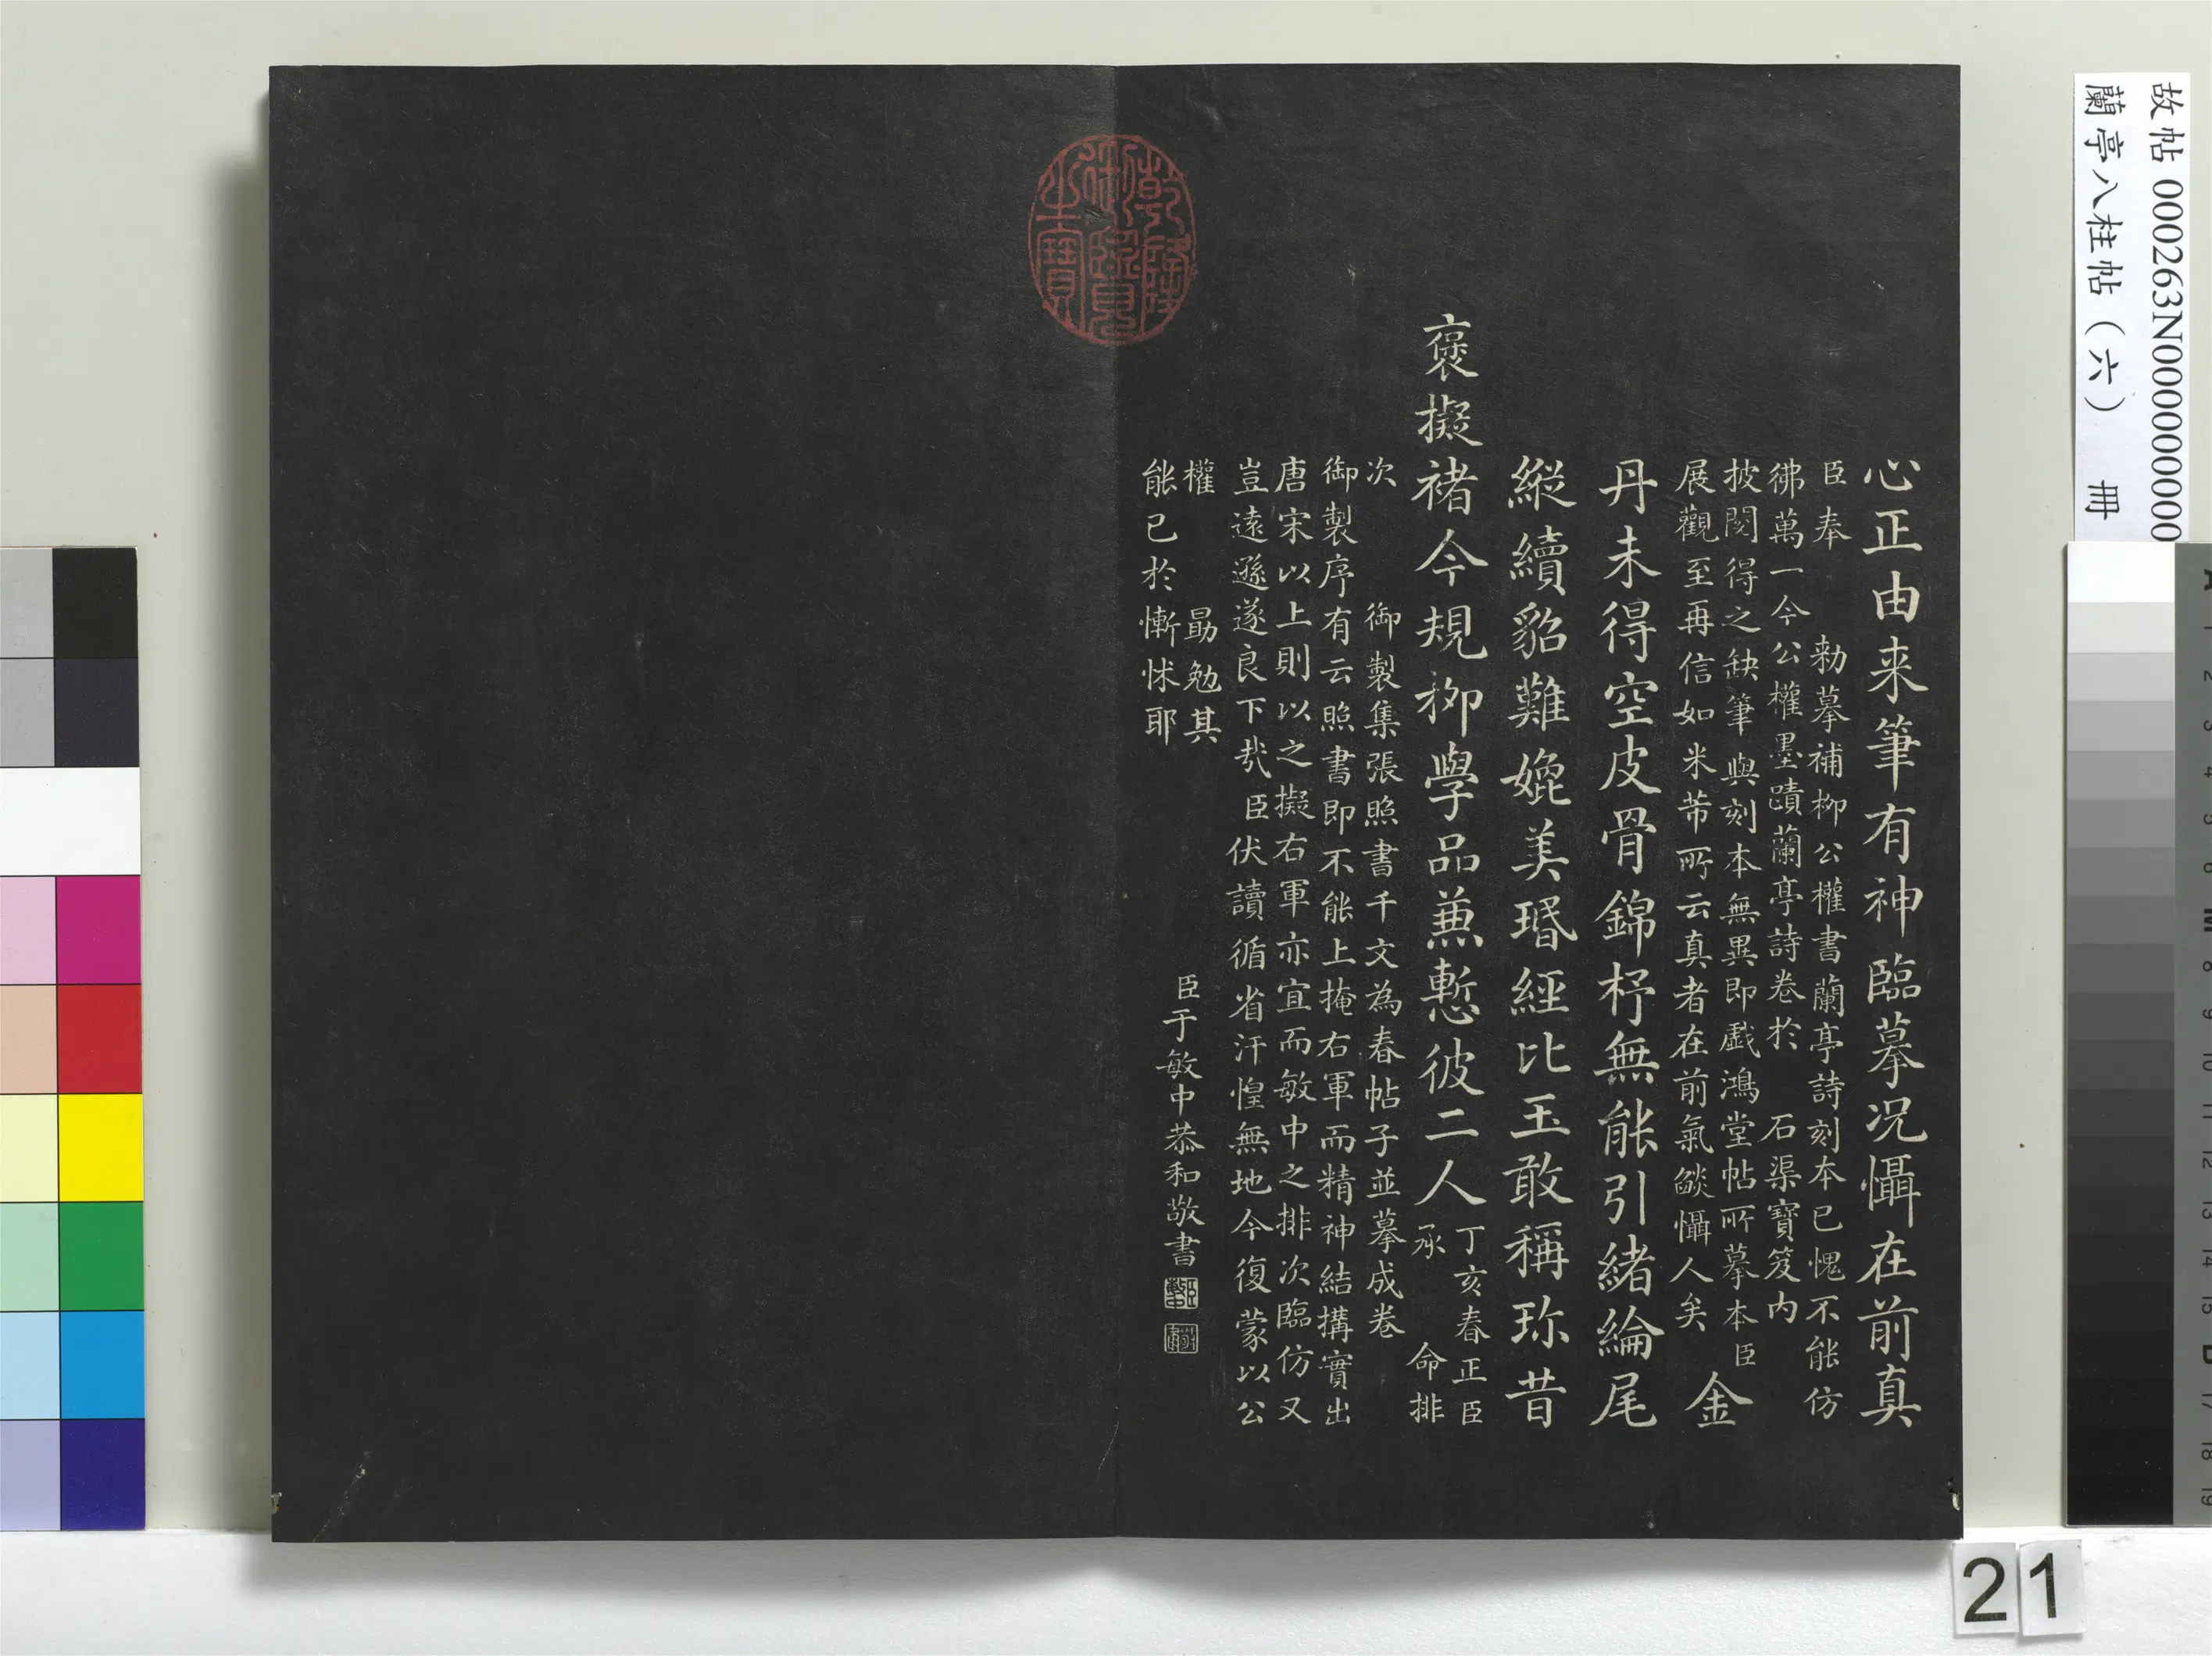 心正由来筆有神臨摹況懾在前真
臣奉　勅摹補柳公權書蘭亭詩刻本已愧不能仿
彿萬一今公權墨蹟蘭亭詩卷於　石渠寶笈內
披閱得之缺筆與刻本無異即戲鴻堂帖所摹本臣
展觀至再信如米芾所云真者在前氣燄懾人矣
金
丹未得空皮骨錦杼無能引緒綸尾
縱續貂難媲美瑉經比玉敢稱珎昔
褒擬褚今規柳學品蕪慙彼二人
丁亥春正臣
承　命排
次　御製集張照書千文為春帖子並摹成卷
御製序有云照書即不能上掩右軍而精神結搆實出
唐宋以上則以之擬右軍亦宜而敏中之排次臨仿又
豈遠遜遂良下㢤臣伏讀循省汗惶無地今復蒙以公
權　勗勉其
能已於慚怵耶
臣于敏中恭和敬書
乾隆御覽之寶
故帖 000263N000000000
蘭亭八柱帖（六）　冊
21